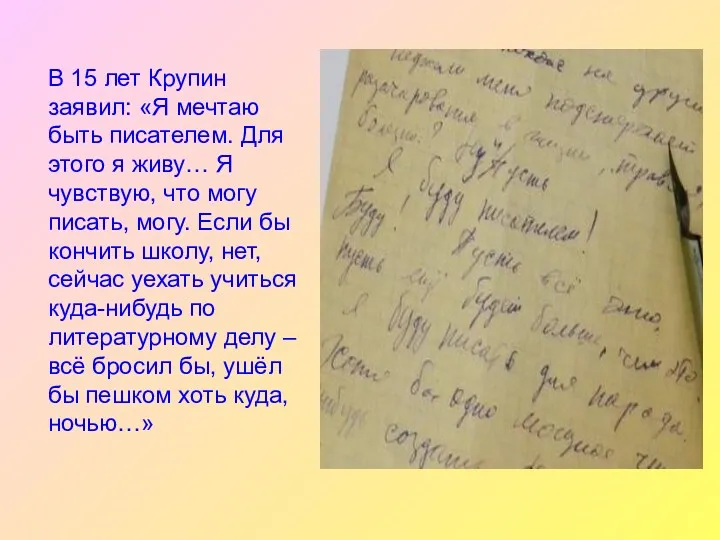 В 15 лет Крупин
заявил: «Я мечтаю
быть писателем. Для
этого я живу… Я
чувствую, что могу
писать, могу. Если бы
кончить школу, нет,
сейчас уехать учиться
куда-нибудь по
литературному делу –
всё бросил бы, ушёл
бы пешком хоть куда,
ночью…»
на други
меня подстерегает
разочарования в жизни,
болезнь? Ну! Пусть
Я буду писателем!
Буду! Пусть всё это,
пусть ещё будет больше, чем это
Я буду писать для народа.
Хотя бы одно мощное
нибудь создать